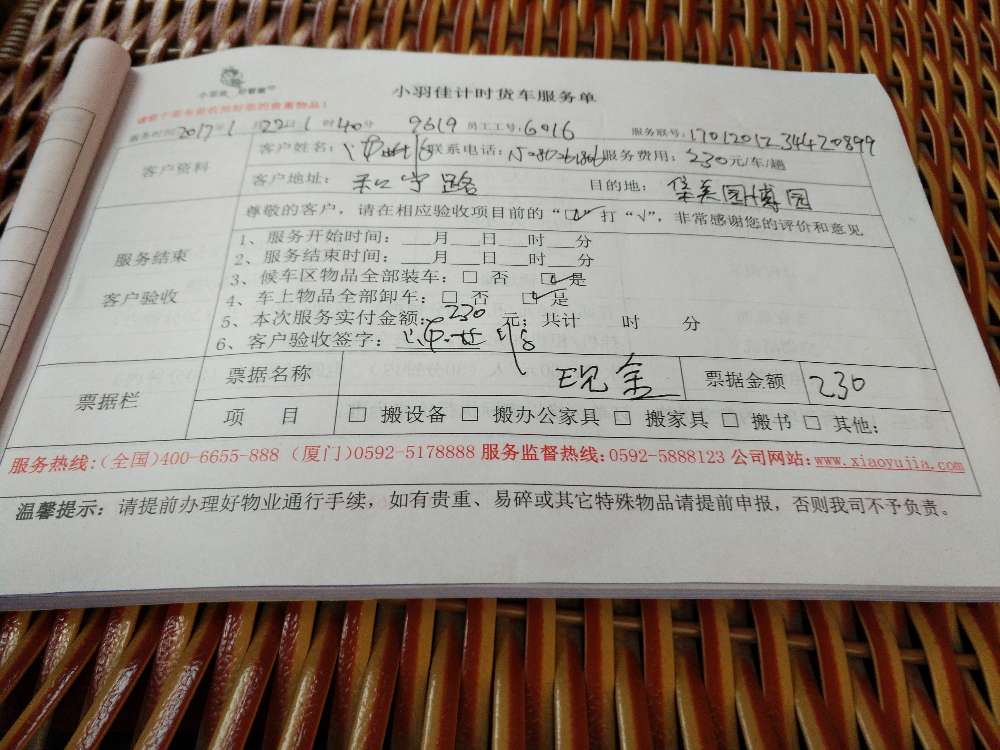 小羽佳计时货车服务单
服务时间2017年1月22日1时40分 9619 员工工号:6016 服务联号:1701201234420899
客户资料
客户姓名: 联系电话: 服务费用:230元/车/趟
客户地址: 和宁路 目的地: 集美园博园
服务结束
客户验收
尊敬的客户,请在相应验收项目前的“□”打“√”,非常感谢您的评价和意见
1、服务开始时间:___月___日___时___分
2、服务结束时间:___月___日___时___分
3、候车区物品全部装车:□ 否 ☑ 是
4、车上物品全部卸车:□ 否 ☑ 是
5、本次服务实付金额:230元;共计 时 分
6、客户验收签字:
票据栏
票据名称 现金 票据金额 230
项 目 □ 搬设备 □ 搬办公家具 □ 搬家具 □ 搬书 □ 其他:
服务热线:(全国)400-6655-888 (厦门)0592-5178888 服务监督热线:0592-5888123 公司网站:www.xiaoyujia.com
温馨提示:请提前办理好物业通行手续,如有贵重、易碎或其它特殊物品请提前申报,否则我司不予负责。